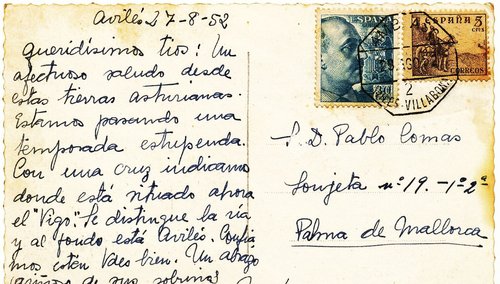 Avilés 27-8-52
Queridísimos tios: Un
afectuoso saludo desde
estas tierras asturianas.
Estamos pasando una
temporada estupenda.
Con una cruz indicamos
donde está situado ahora
el "Vigo". Se distingue la ría
y al fondo está Avilés. Confia
mos estén Vdes bien. Un abrazo
de sus sobrinos
ESPAÑA
ESPAÑA
5
CTS
CORREOS
2
VILLABONA
S. D. Pablo Comas
Lonjeta nº 19.-1º-2ª
Palma de Mallorca